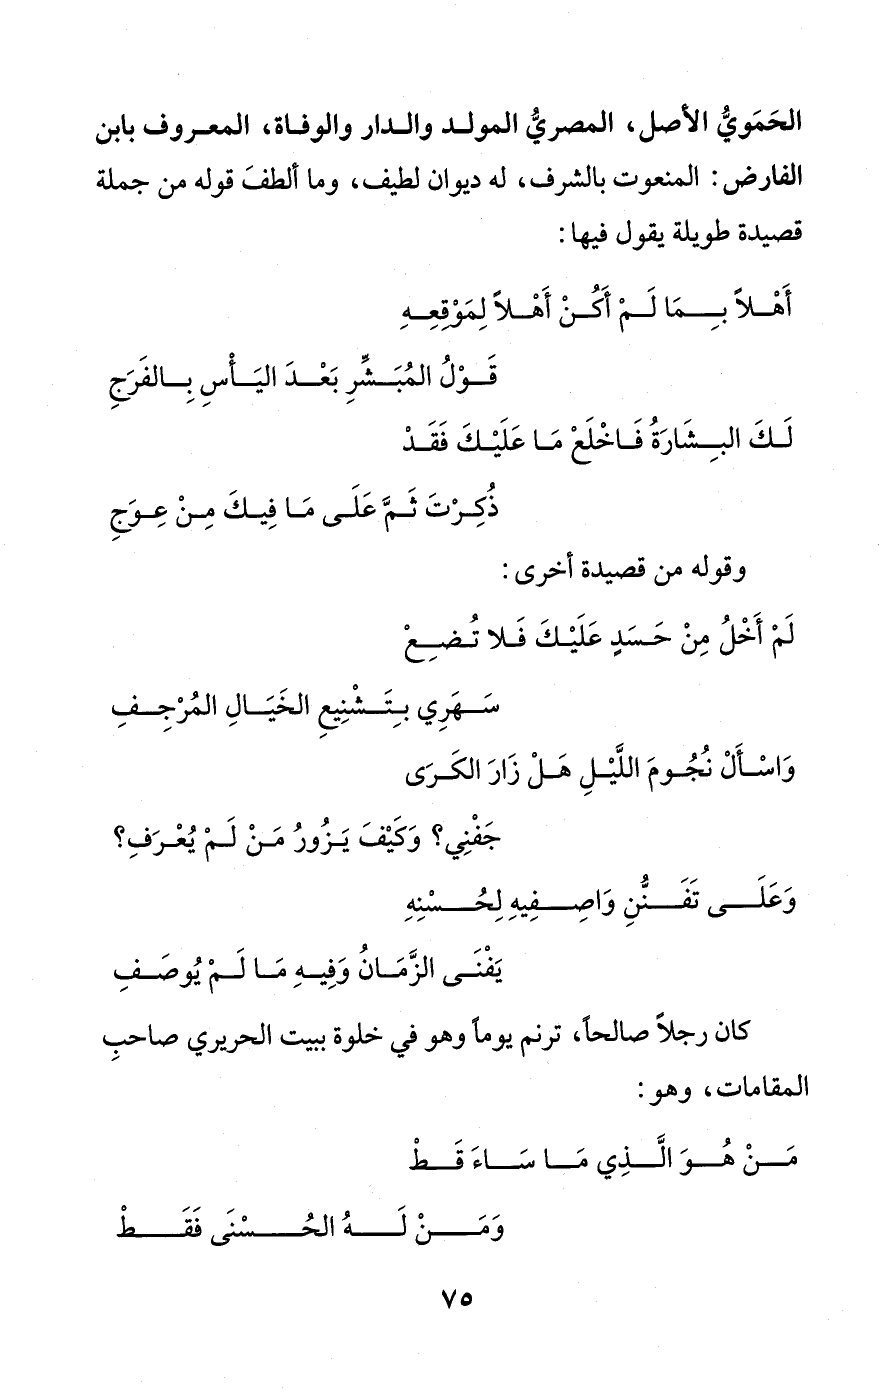 الحَمَويُّ الأصل، المصريُّ المولد والدار والوفاة، المعروف بابن
الفارض: المنعوت بالشرف، له ديوان لطيف، وما ألطفَ قوله من جملة
قصيدة طويلة يقول فيها:
أَهْلاً بِمَا لَمْ أَكُنْ أَهْلاً لِمَوْقِعِهِ
قَوْلُ المُبَشِّرِ بَعْدَ اليَأْسِ بِالفَرَجِ
لَكَ البِشَارَةُ فَاخْلَعْ مَا عَلَيْكَ فَقَدْ
ذُكِرْتَ ثَمَّ عَلَى مَا فِيكَ مِنْ عِوَجِ
وقوله من قصيدة أخرى:
لَمْ أَخْلُ مِنْ حَسَدٍ عَلَيْكَ فَلا تُضِعْ
سَهَرِي بِتَشْنِيعِ الخَيَالِ المُرْجِفِ
وَاسْأَلْ نُجُومَ اللَّيْلِ هَلْ زَارَ الكَرَى
جَفْنِي؟ وَكَيْفَ يَزُورُ مَنْ لَمْ يُعْرَفِ؟
وَعَلَى تَفَنُّنِ وَاصِفِيهِ لِحُسْنِهِ
يَفْنَى الزَّمَانُ وَفِيهِ مَا لَمْ يُوصَفِ
كان رجلاً صالحاً، ترنم يوماً وهو في خلوة ببيت الحريري صاحبِ
المقامات، وهو:
مَنْ هُوَ الَّذِي مَا سَاءَ قَطْ
وَمَنْ لَهُ الحُسْنَى فَقَطْ
٧٥